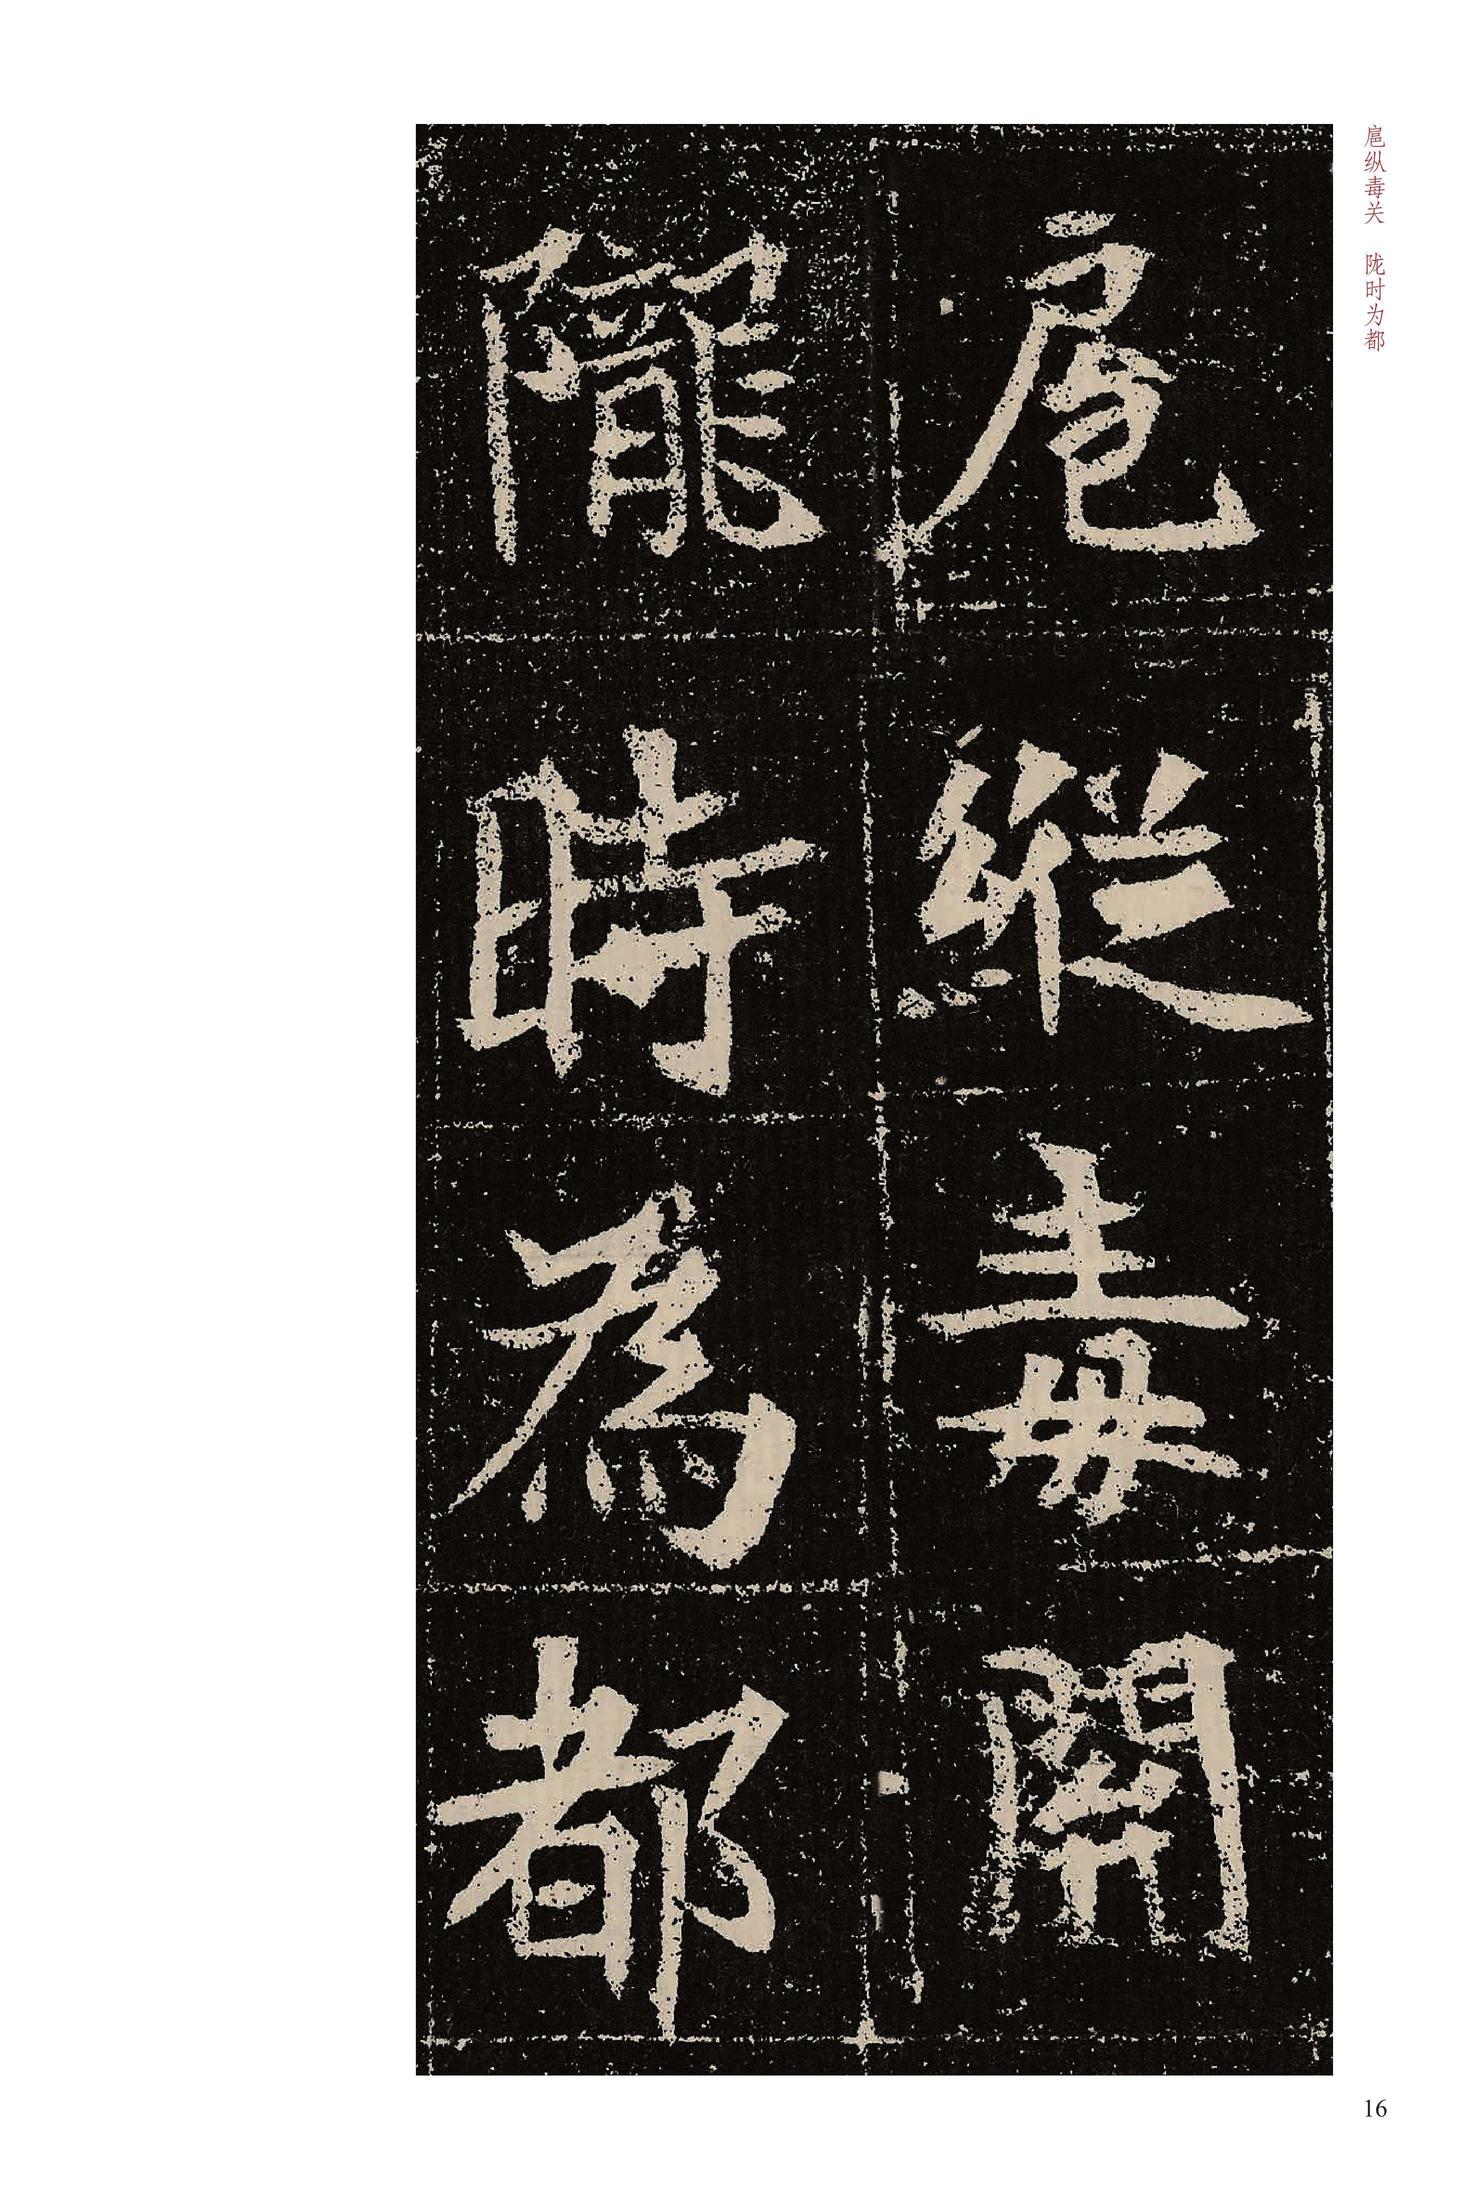 扈纵毒关 陇时为都
扈縱毒關
隴時為都
16